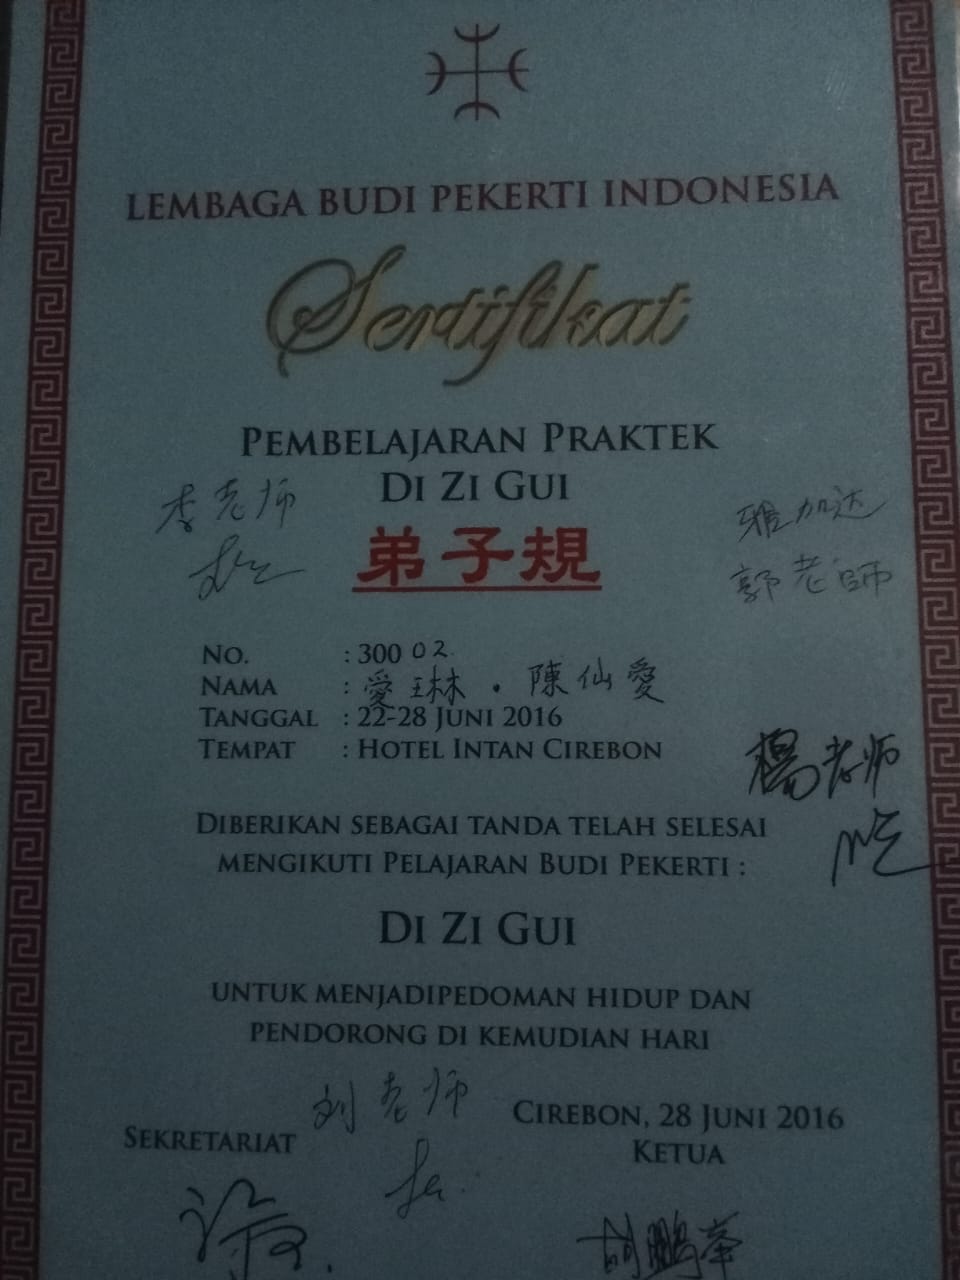 LEMBAGA BUDI PEKERTI INDONESIA
Sertifikat
PEMBELAJARAN PRAKTEK
DI ZI GUI
李老师
雅加达
弟子規
郭老師
NO. : 300 02
NAMA : 愛琳 · 陳仙愛
TANGGAL : 22-28 JUNI 2016
TEMPAT : HOTEL INTAN CIREBON
楊老师
DIBERIKAN SEBAGAI TANDA TELAH SELESAI
MENGIKUTI PELAJARAN BUDI PEKERTI :
DI ZI GUI
UNTUK MENJADIPEDOMAN HIDUP DAN
PENDORONG DI KEMUDIAN HARI
刘老师
CIREBON, 28 JUNI 2016
SEKRETARIAT
KETUA